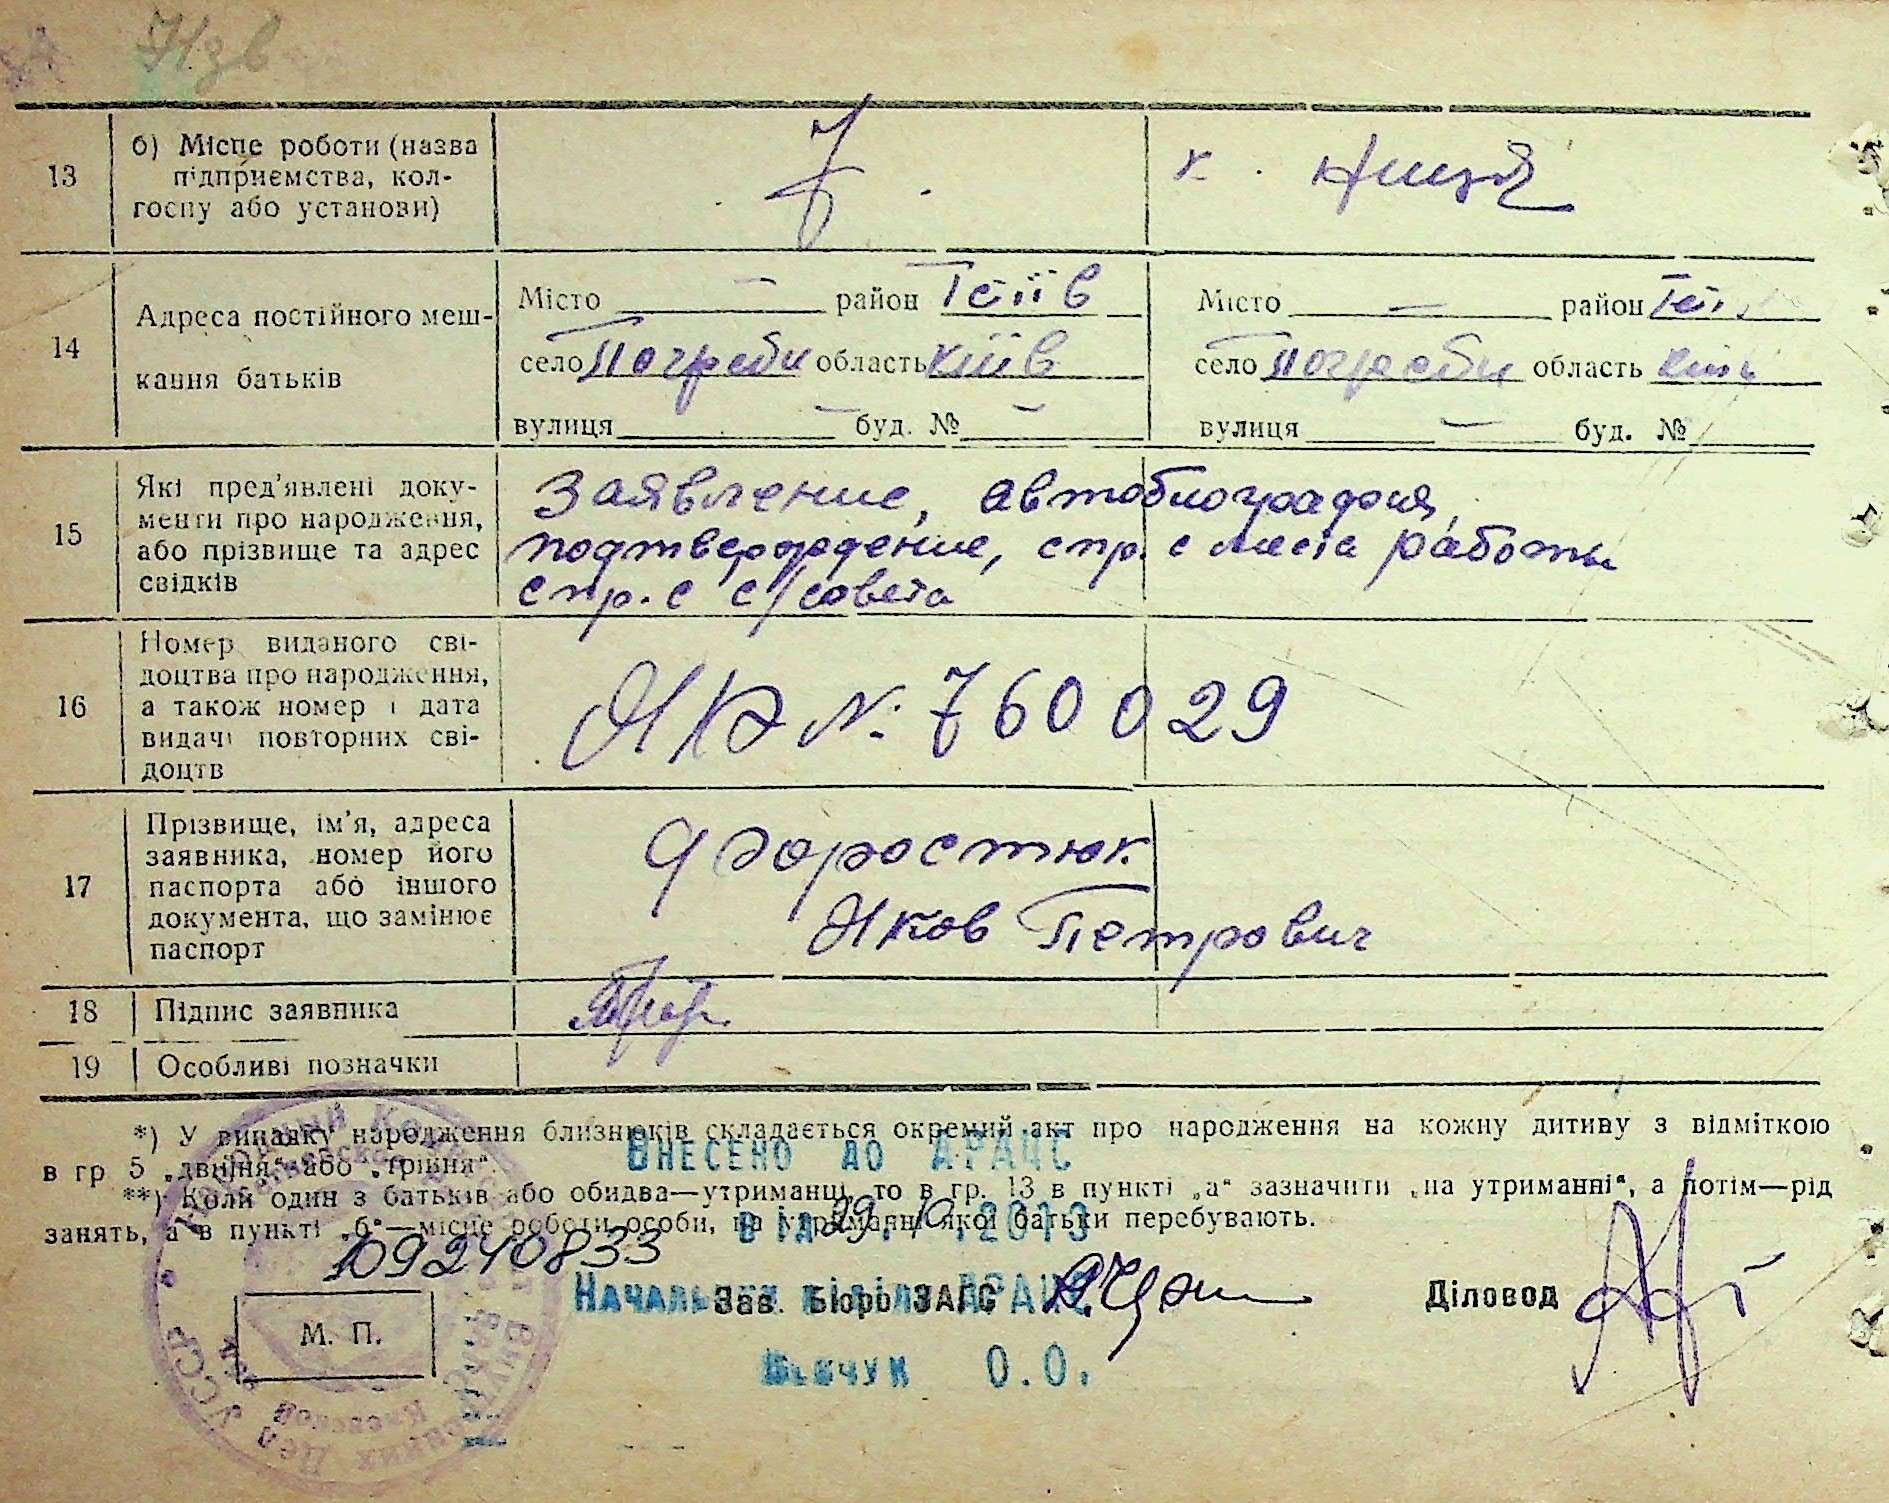 13
б) Місце роботи (назва
підприємства, кол-
госпу або установи)
14
Адреса постійного меш-
кання батьків
Місто — район
село Погреби область Київ
вулиця — буд. № —
Місто — район
село Погреби область
вулиця — буд. №
15
Які пред'явлені доку-
менти про народження,
або прізвище та адрес
свідків
Заявление, автобиография,
подтверждение, спр. с места работы
спр. с с/совета
16
Номер виданого сві-
доцтва про народження,
а також номер і дата
видачі повторних сві-
доцтв
№ 760029
17
Прізвище, ім'я, адреса
заявника, номер його
паспорта або іншого
документа, що замінює
паспорт
Яков Петрович
18
Підпис заявника
19
Особливі позначки
*) У випадку народження близнюків складається окремий акт про народження на кожну дитину з відміткою
в гр 5 „двійня“ або „трійня“.
Внесено до ДРАЦС
**) Коли один з батьків або обидва—утриманці, то в гр. 13 в пункті „а“ зазначити „на утриманні“, а потім—рід
занять, а в пункті „б“—місце роботи особи, на утриманні якої батьки перебувають.
від 29.10.2013
109240833
Начальник відділу ДРАЦС
Зав. Бюро ЗАГС
Діловод
М. П.
Шевчук О.О.